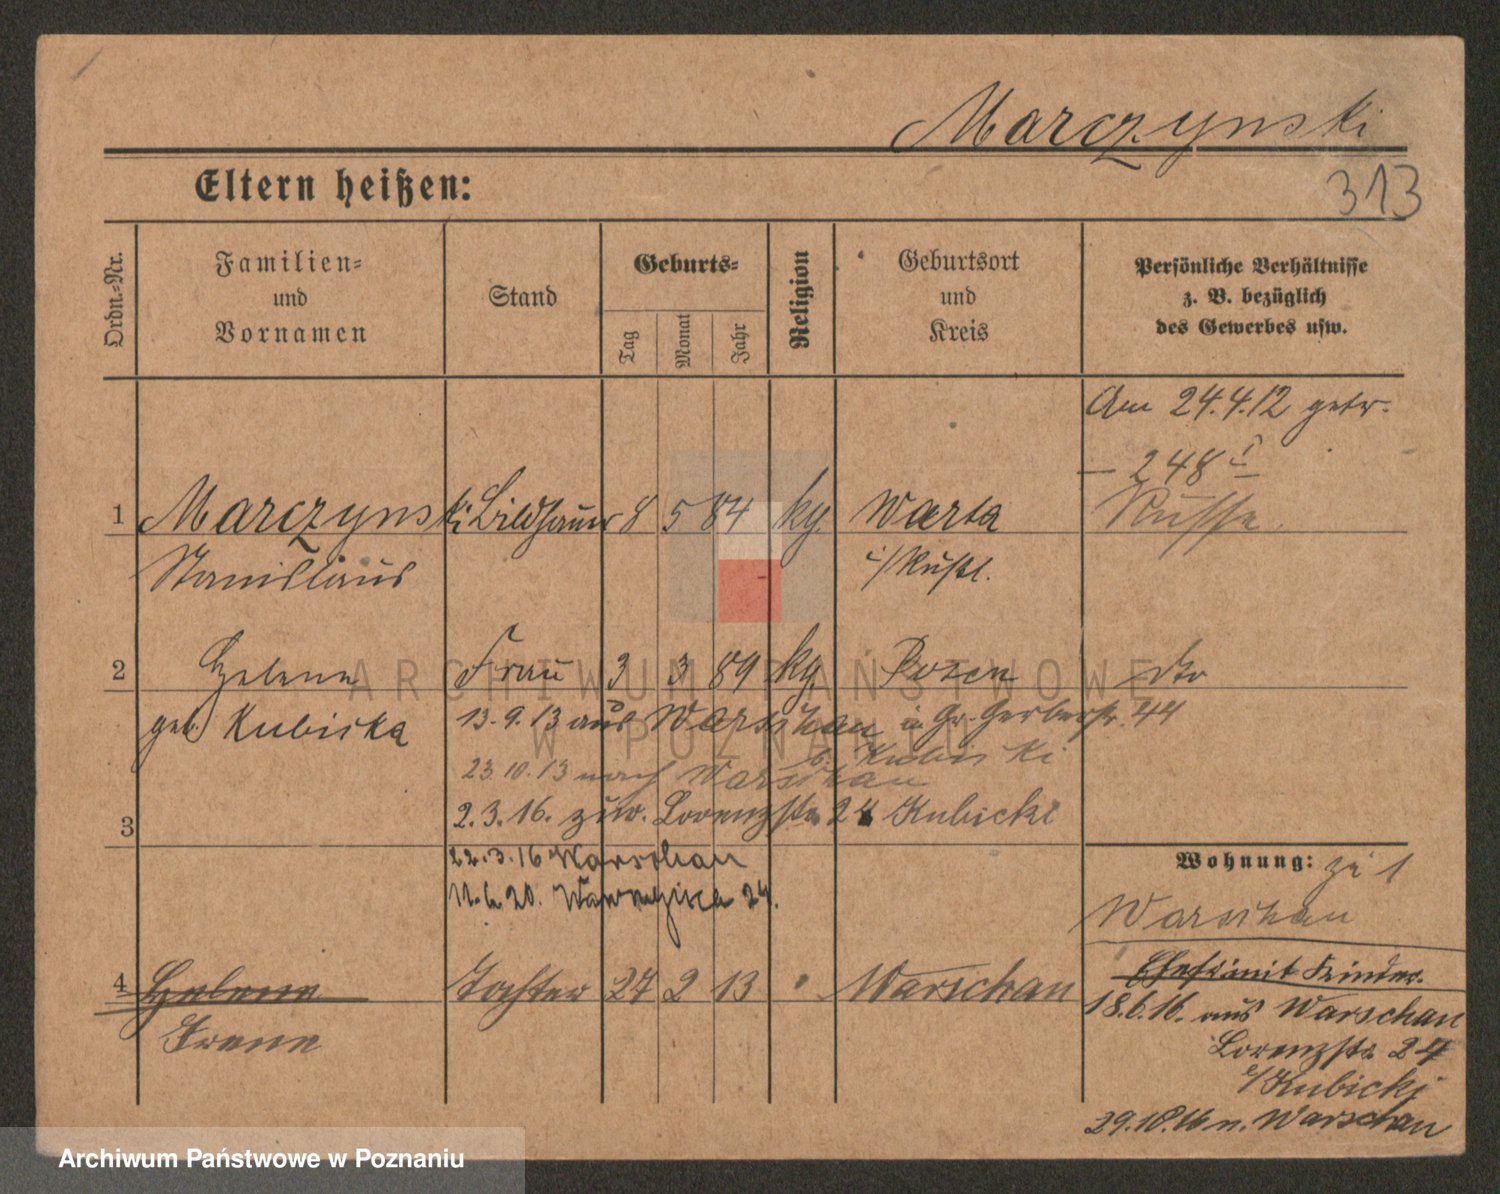 Marczynski
Eltern heißen:
313
Ordn.-Nr.
Familien-
und
Vornamen
Stand
Geburts-
Tag
Monat
Jahr
Religion
Geburtsort
und
Kreis
Persönliche Verhältnisse
z. B. bezüglich
des Gewerbes usw.
Am 24.4.12 getr.
248
1 Marczynski Bildhauer 8 5 84 kg. Warta Russe
Stanislaus i/Rußl.
2 Helene Frau 3 3 89 kg. Posen dto
geb. Kubicka
13.9.13 aus Warschau in Gr. Gerberstr. 44
b. Kubicki
23.10.13 nach Warschau
3
2.3.16. zur. Lorenzstr. 24 Kubicki
22.3.16 Warschau
24.
Wohnung: zu 1
Warschau
4 Helene Tochter 24 2 13 Warschau
Irene
18.6.16. aus Warschau
Lorenzstr. 24
b/Kubicki
29.10.16 n. Warschau
ARCHIWUM PAŃSTWOWE
W POZNANIU
Archiwum Państwowe w Poznaniu